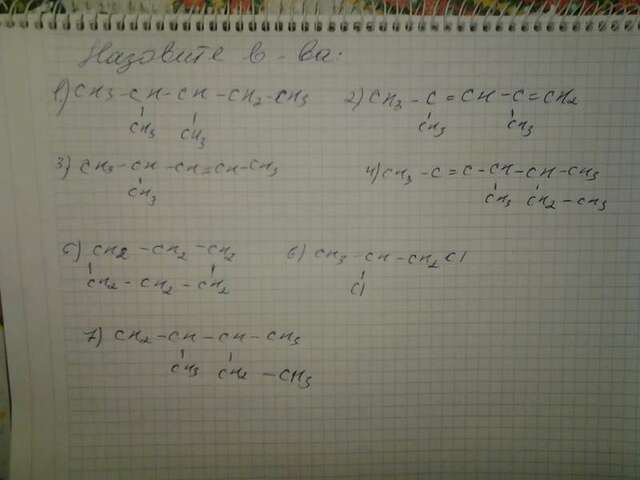 Назовите в-ва:
1) CH3-CH-CH-CH2-CH3 2) CH3-C=CH-C=CH2
CH3 CH3 CH3 CH3
3) CH3-CH-CH=CH-CH3 4) CH3-C=C-CH-CH-CH3
CH3 CH3 CH2-CH3
5) CH2-CH2-CH2 6) CH3-CH-CH2Cl
CH2-CH2-CH2 Cl
7) CH2-CH-CH-CH3
CH3 CH2-CH3